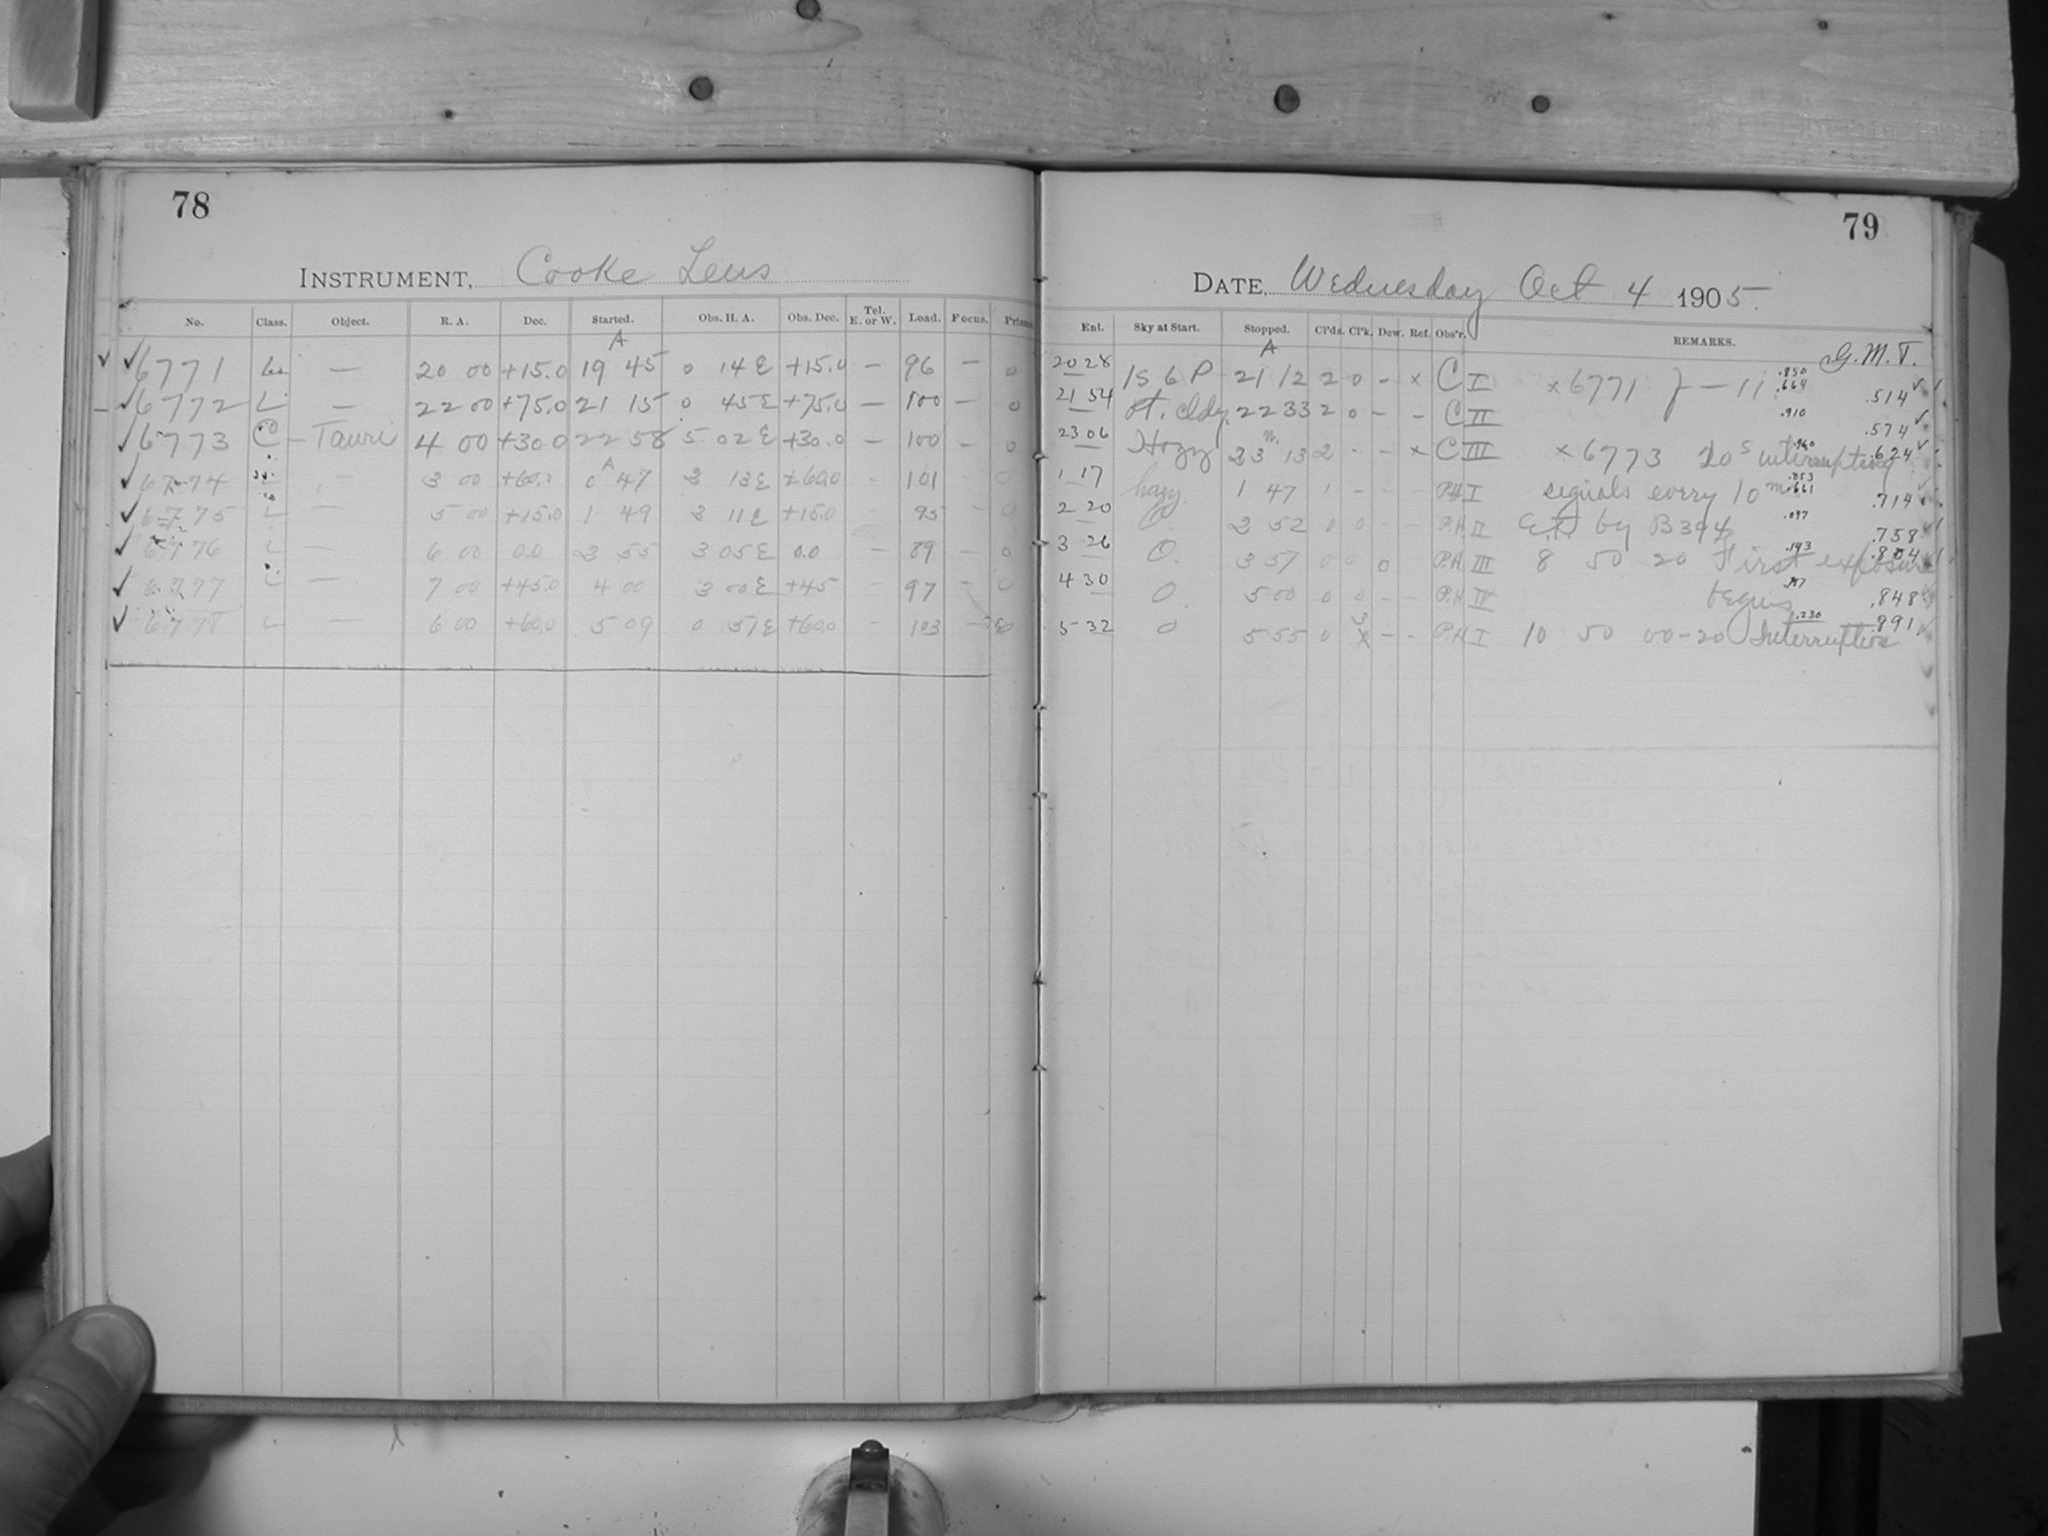 78
INSTRUMENT, Cooke Lens
No. Class. Object. R. A. Dec. Started. Obs. H. A. Obs. Dec. Tel. E. or W. Load. Focus. Prisms
A
6771 — 20 00 +15.0 19 45 0 14 E +15.0 — 96 — 0
6772 L — 22 00 +75.0 21 15 0 45 E +75.0 — 100 — 0
6773 C — Tauri 4 00 +30.0 22 58 5 02 E +30.0 — 100 — 0
6774 — 3 00 +60.0 0 47 3 13 E +60.0 - 101 - 0
6775 L — 5 00 +15.0 1 49 3 11 E +15.0 - 95 - 0
6776 L — 6 00 0.0 2 55 3 05 E 0.0 - 89 - 0
6777 L — 7 00 +45.0 4 00 3 00 E +45 - 97 - 0
6778 L — 6 00 +60.0 5 09 0 51 E +60.0 - 103
79
DATE, Wednesday Oct 4 1905.
Enl. Sky at Start. Stopped. Cl'ds. Cl'k. Dew. Ref. Obs'r. REMARKS.
A G.M.T.
20 28 1S 6 P 21 12 2 0 - x C I x 6771 .514
21 54 pt. cldy. 22 33 2 0 - - C II .910 .574
23 06 Hazy 23 13 2 - - x C III x 6773 20 s interrupting .624
1 17 hazy 1 47 1 - - - P.H. I signals every 10 m .714
2 20 0 2 52 0 0 - - P.H. II by B394 .758
3 26 0. 3 57 0 0 0 P.H. III 8 50 20 First exposure .193 .804
4 30 0 5 00 0 0 - - P.H. IV begins .848
5 32 0 5 55 0 - - P.H. I 10 50 00-20 Interruption .230 .891